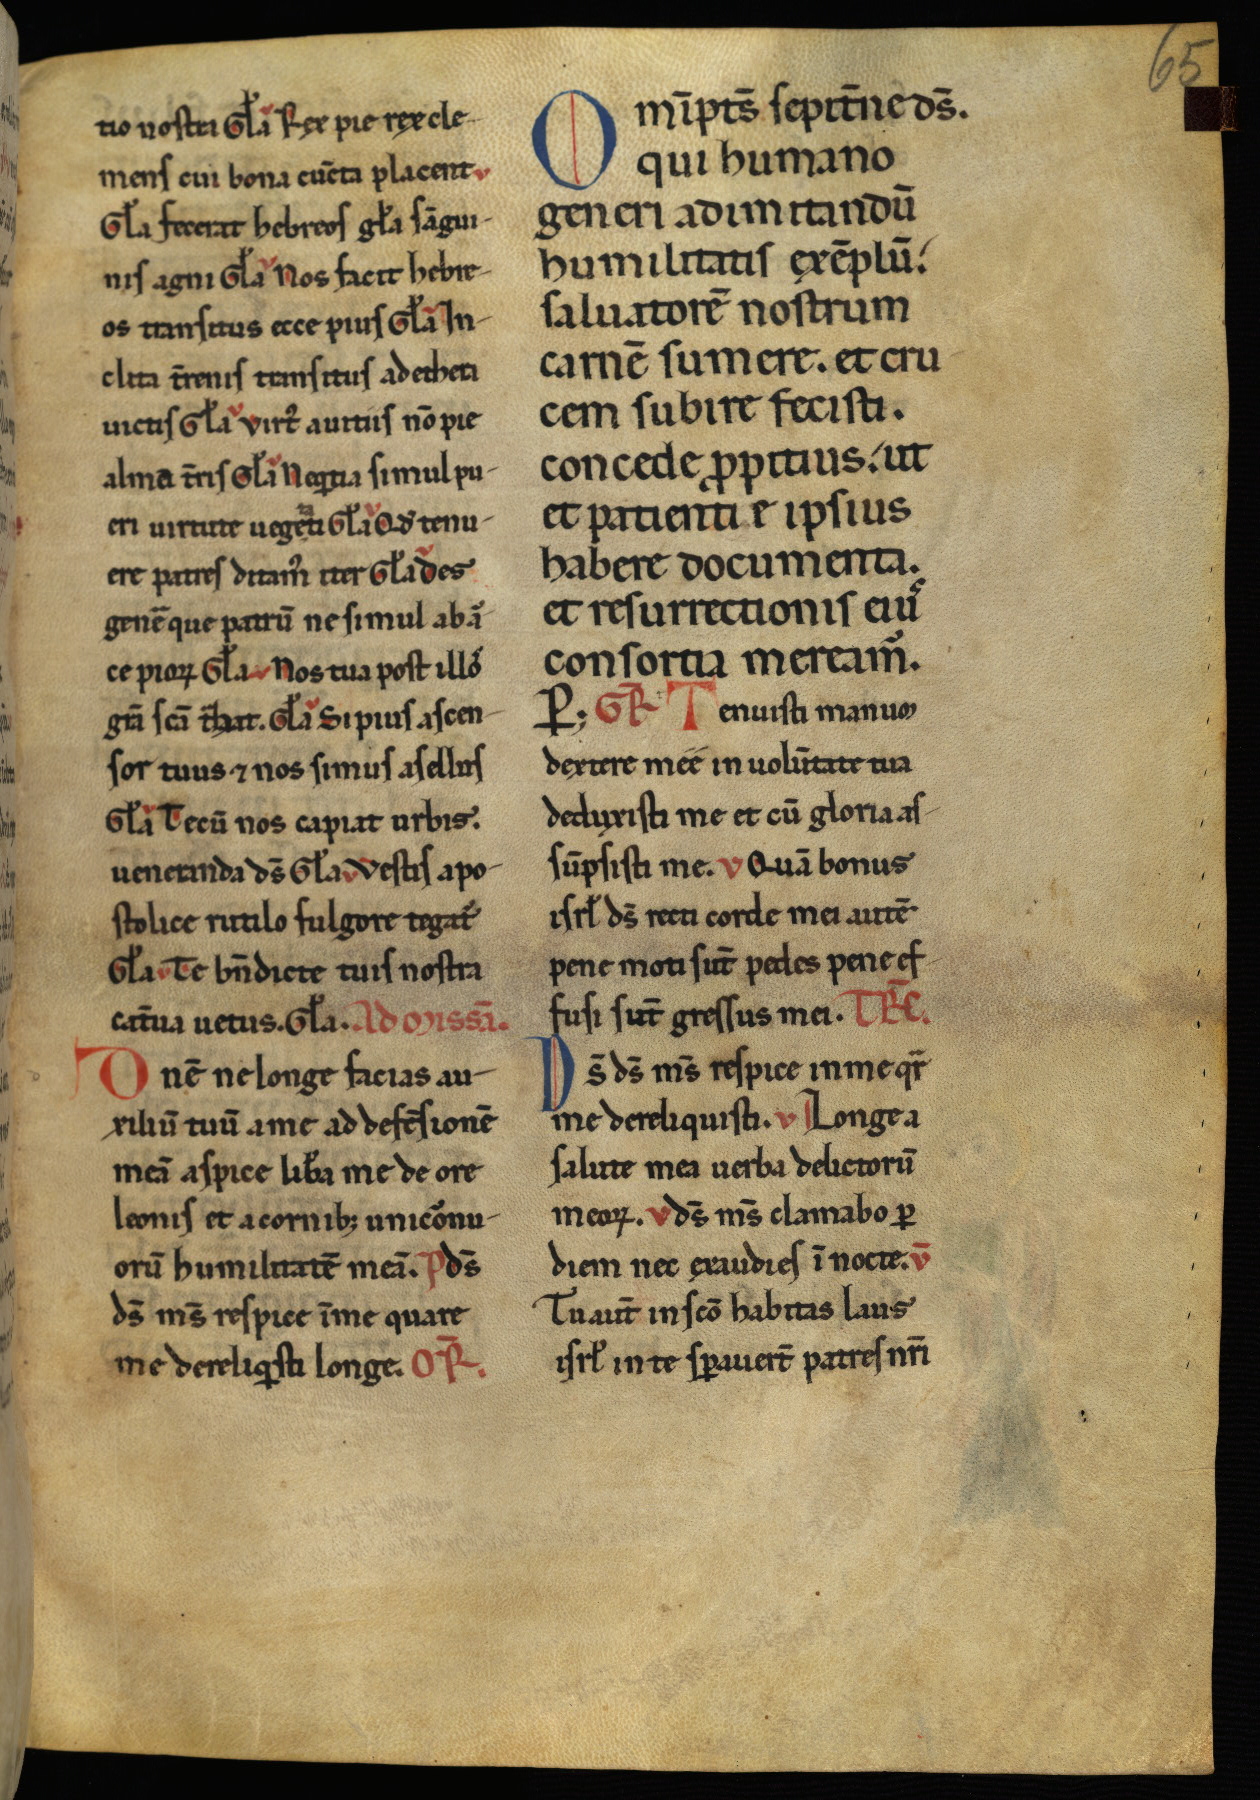 65
tio nostri Gl̄a Rex pie rex cle-
mens cui bona cūcta placent v
Gl̄a fecerat hebreos gl̄a sāgui-
nis agni Gl̄a v Nos facit hebre-
os transitus ecce pius Gl̄a v In-
clita t̄renis transitus ad ethera
uictis Gl̄a v virt᷒ auttus nō pie
alma t̄ris Gl̄a v Neqͥtia simul pu-
eri uirtute uegeti Gl̄a v Qd̄ tenu-
ere patres ditam᷒ iter Gl̄a v des
genēque patrū ne simul ab ā
ce pioꝝ Gl̄a v Nos tua post illo᷒
gr̄a sc̄a t̄hat. Gl̄a v Si pius ascen-
sor tuus ⁊ nos simus asellus
Gl̄a v Tecū nos capiat urbis.
ueneranda ds̄ Gl̄a v Vestis apo-
stolice rutilo fulgore tegat᷒
Gl̄a v Te bn̄dicte tuis nostra
cat̄ua uetus. Gl̄a. Ad missā.
Dnē ne longe facias au-
xiliū tuū a me ad defēsionē
meā aspice lib̄a me de ore
leonis et a cornibꝫ unico᷒nu-
orū humilitatē meā. P ds̄
ds̄ ms̄ respice ī me quare
me dereliqͥsti longe. OR̄.
Om̄ipt̄s sepit̄ne ds̄.
qui humano
generi ad imitandū
humilitatis exēplū.
saluatorē nostrum
carnē sumere. et cru
cem subire fecisti.
concede ꝓpitius. ut
et patientie ipsius
habere documenta.
et resurrectionis eiu᷒
consortia meream᷒.
P̱; GR̄ Tenuisti manum
dextere meē in uolūtate tua
deduxisti me et cū gloria as-
sūpsisti me. v Quā bonus
isrl̄ ds̄ recti corde mei autē
pene moti sūt pedes pene ef-
fusi sūt gressus mei. TR̄C.
Ds̄ ds̄ ms̄ respice in me qr̄
me dereliquisti. v Longe a
salute mea uerba delictorū
meoꝝ. v ds̄ ms̄ clamabo ꝑ
diem nec exaudies ī nocte. v̄
Tu aut̄ in sc̄o habitas laus
isrl̄ in te sꝑauert̄ patres nr̄i